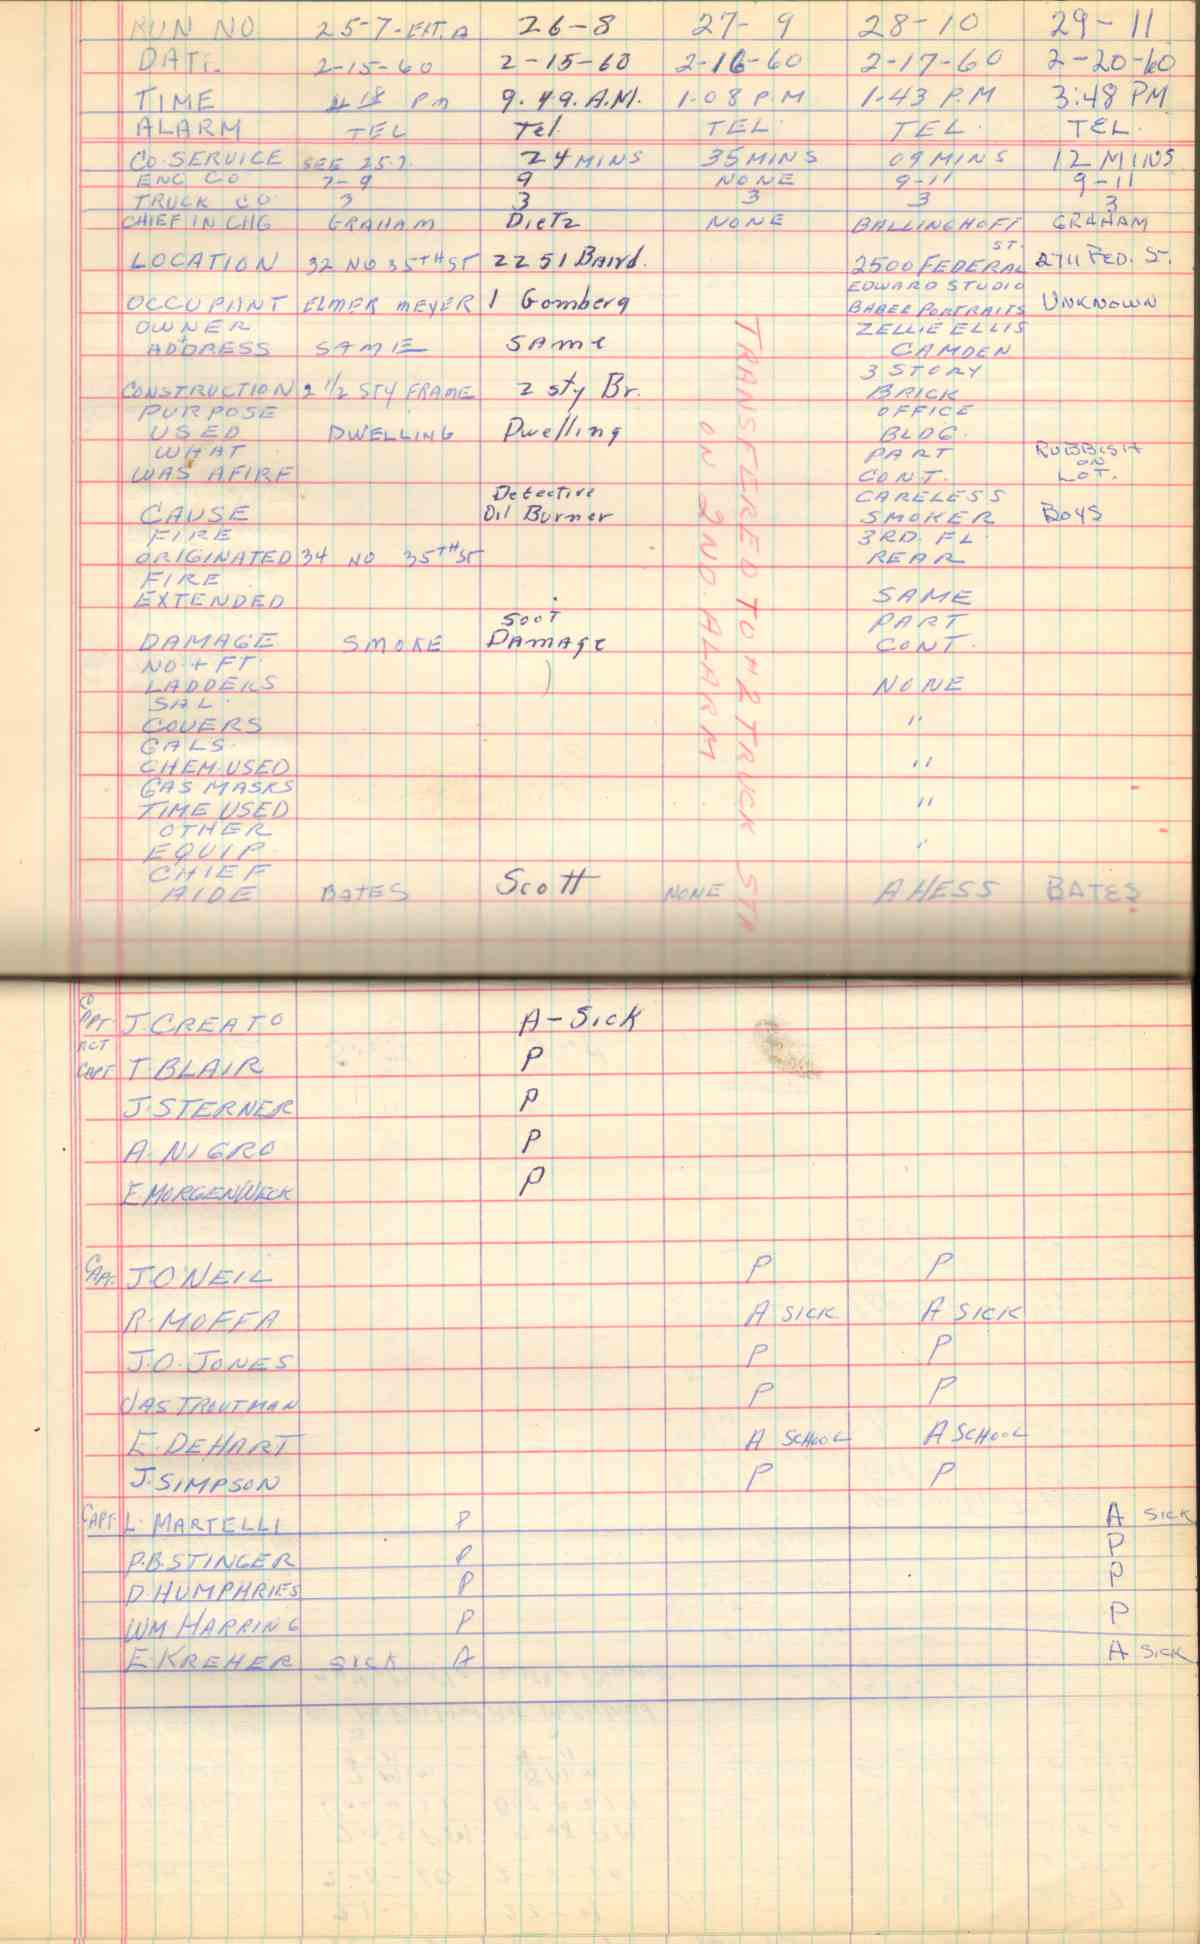 RUN NO 25-7-EXT.A 26-8 27-9 28-10 29-11
DATE 2-15-60 2-15-60 2-16-60 2-17-60 2-20-60
TIME PM 9.49.A.M. 1.08 P.M 1.43 P.M 3:48 PM
ALARM TEL Tel. TEL. TEL. TEL.
CO. SERVICE SEE 25-7 24 MINS 35 MINS 09 MINS 12 MINS
ENG CO 7-9 9 NONE 9-11 9-11
TRUCK CO. 3 3 3 3 3
CHIEF IN CHG GRAHAM Dietz NONE BALLINGHOFF GRAHAM
LOCATION 32 NO 35TH ST 2251 Baird. 2500 FEDERAL ST. 2711 FED. ST.
EDWARD STUDIO
OCCUPANT ELMER MEYER I Gomberg BABEE PORTRAITS UNKNOWN
OWNER ZELLIE ELLIS
ADDRESS SAME SAME CAMDEN
3 STORY
CONSTRUCTION 2 1/2 STY FRAME 2 sty Br. BRICK
PURPOSE OFFICE
USED DWELLING Dwelling BLDG.
WHAT PART RUBBISH
ON
WAS AFIRE CONT. LOT.
Detective CARELESS
CAUSE Oil Burner SMOKER BOYS
FIRE 3RD. FL.
ORIGINATED 34 NO 35TH ST REAR
FIRE
EXTENDED SAME
Soot PART
DAMAGE SMOKE DAMAGE CONT.
NO. + FT.
LADDERS NONE
SAL.
COVERS "
GALS.
CHEM. USED "
GAS MASKS
TIME USED "
OTHER
EQUIP. "
CHIEF
AIDE BATES Scott NONE A HESS BATES
TRANSFERED TO #2 TRUCK STA
ON 2ND. ALARM
CAPT J. CREATO A-SICK
ACT
CAPT T. BLAIR P
J. STERNER P
A. NIGRO P
E. MORGENWECK P
CAPT. J. O'NEIL P P
R. MOFFA A SICK A SICK
J. O. JONES P P
JAS TROUTMAN P P
E. DEHART A SCHOOL A SCHOOL
J. SIMPSON P P
CAPT. L. MARTELLI P A SICK
P. B. STINGER P P
D. HUMPHRIES P P
WM HARRING P P
E. KREHER SICK A A SICK